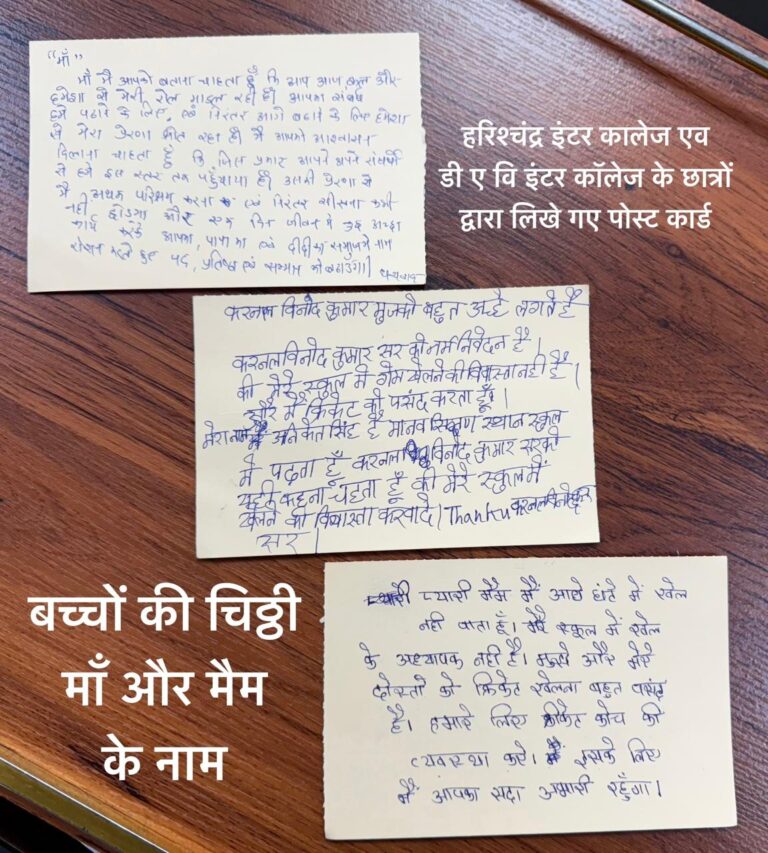 "माँ"
माँ मैं आपको बताना चाहता हूँ कि आप आज कल और
हमेशा से मेरी रोल माडल रही हैं। आपका संघर्ष
हमे पढाने के लिए, एवं निरंतर आगे बढाने के लिए हमेशा
से मेरा प्रेरणा स्रोत रहा है। मै आपको आश्वासन
दिलाना चाहता हूँ कि जिस प्रकार आपने अपने संघर्षो
से हमे इस स्तर तक पहुँचाया है। उसकी प्रेरणा से
मै अथक परिश्रम करना एवं निरंतर सीखना कभी
नही छोडूगा और एक दिन जीवन मे कुछ अच्छा
कार्य करके आपका, पापा का एवं दीदी का समाज मे नाम
रोशन करते हुए पद, प्रतिष्ठा एवं सम्मान को बढाउंगा।
धन्यवाद
हरिश्चंद्र इंटर कालेज एव
डी ए वि इंटर कॉलेज के छात्रों
द्वारा लिखे गए पोस्ट कार्ड
करनल विनोद कुमार मुजको बहुत अच्छे लगते है
करनल विनोद कुमार सर को नर्म निवेदन है।
की मेरे स्कुल में गेम खेलने की विवास्ता नही है।
और में क्रिकेट को पसंद करता हूँ।
मेरा नाम अनिकेत सिंह है मानव सिक्षण स्थान स्कुल
में पढ़ता हूँ करनल विनोद कुमार सर को
यही कहना चहता हूँ की मेरे स्कुल में
खेलने की विवास्ता करवादे। Thanku करनल विनोद कुमार
सर।
बच्चों की चिठ्ठी
माँ और मैम
के नाम
प्यारी मैम मैं आधे घंटे में खेल
नही पाता हूँ। मेरे स्कूल में खेल
के अध्यापक नही है। मुझे और मेरे
दोस्तो को क्रिकेट खेलना बहुत पसंद
है। हमारे लिए क्रीकेट कोच की
व्यवस्था करे। इसके लिए
मैं आपका सदा अभारी रहुँगा।